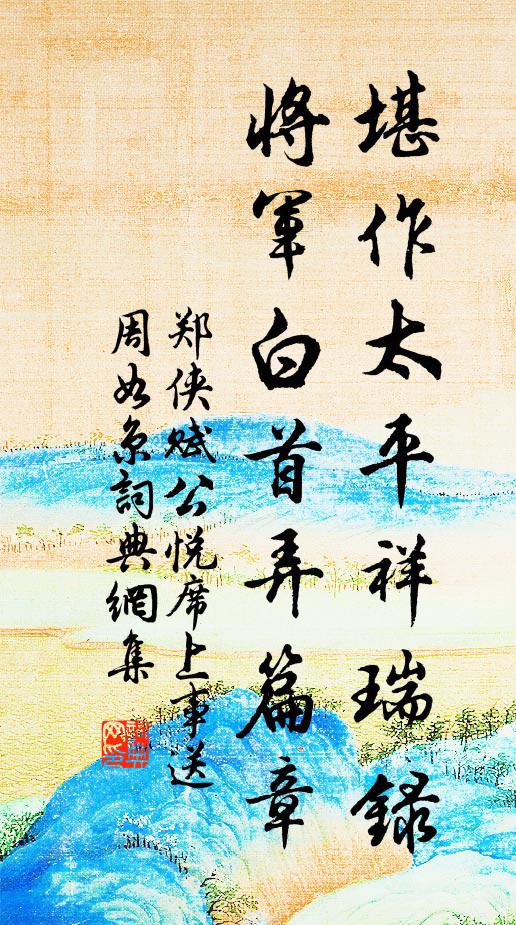 堪作太平祥瑞録
将軍白首弄篇章
郑侠赋公悦席上事送
周如京詞典網集